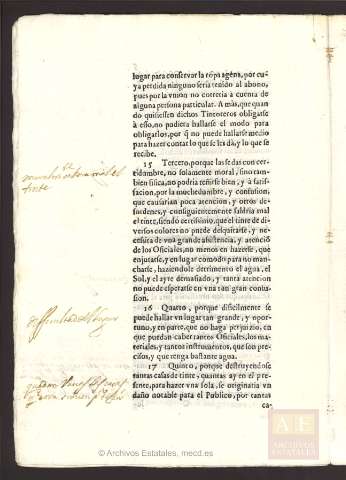 lugar para conservar la ropa agena, por cu-
ya perdida ninguno seria tenido al abono,
pues por la vnion no correria à cuenta de
alguna persona particular. A màs, que quan
do quisiessen dichos Tintoreros obligarse
à esso, no pudiera hallarse el modo para
obligarlos, por q̃ no puede hallarse medio
para hazer contar lo que se les dà, y lo que se
recibe.
15 Tercero, porque las sedas con cer-
tidumbre, no solamente moral, sino tam-
bien fisica, no podria teñirse bien, y à satis-
facion, por la muchedumbre, y confusion,
que causarian poca atencion, y otros de-
sordenes, y consiguientemente saldria mal
el tinte, siendo certissimo, que el tinte de di-
versos colores no puede
necessita de vna grande assistencia, y atenciò
de los Oficiales, no menos en hazerse, que
enjutarse, y en lugar comodo para no man-
charse, haziendole detrimento el agua, el
Sol, y el ayre demasiado, y tanta atencion
no puede esperarse en vna tan gran confu-
sion.
16 Quarto, porque dificilmente se
puede hallar vn lugar tan grande, y opor-
tuno, y en parte, que no haga perjuizio, en
que puedan caber tantos Oficiales, los ma-
teriales, y tantos instrumentos, que son pre-
ciso, y que tenga bastante agua.
17 Quinto, porque destruyendose
tantas casas de tinte, quantas ay en el pre-
sente, para hazer vna sola, se originaria vn
daño notable para el Publico, por tantas
ca-
tinte
AE
ARCHIVOS
ESTATALES
© Archivos Estatales, mecd.es